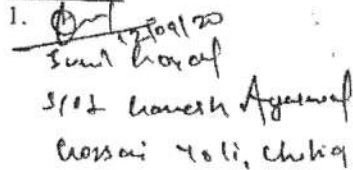 1.
12/09/20
Sunil Goyal
S/o L Ganesh Agarwal
Gossai Toli, Chutia